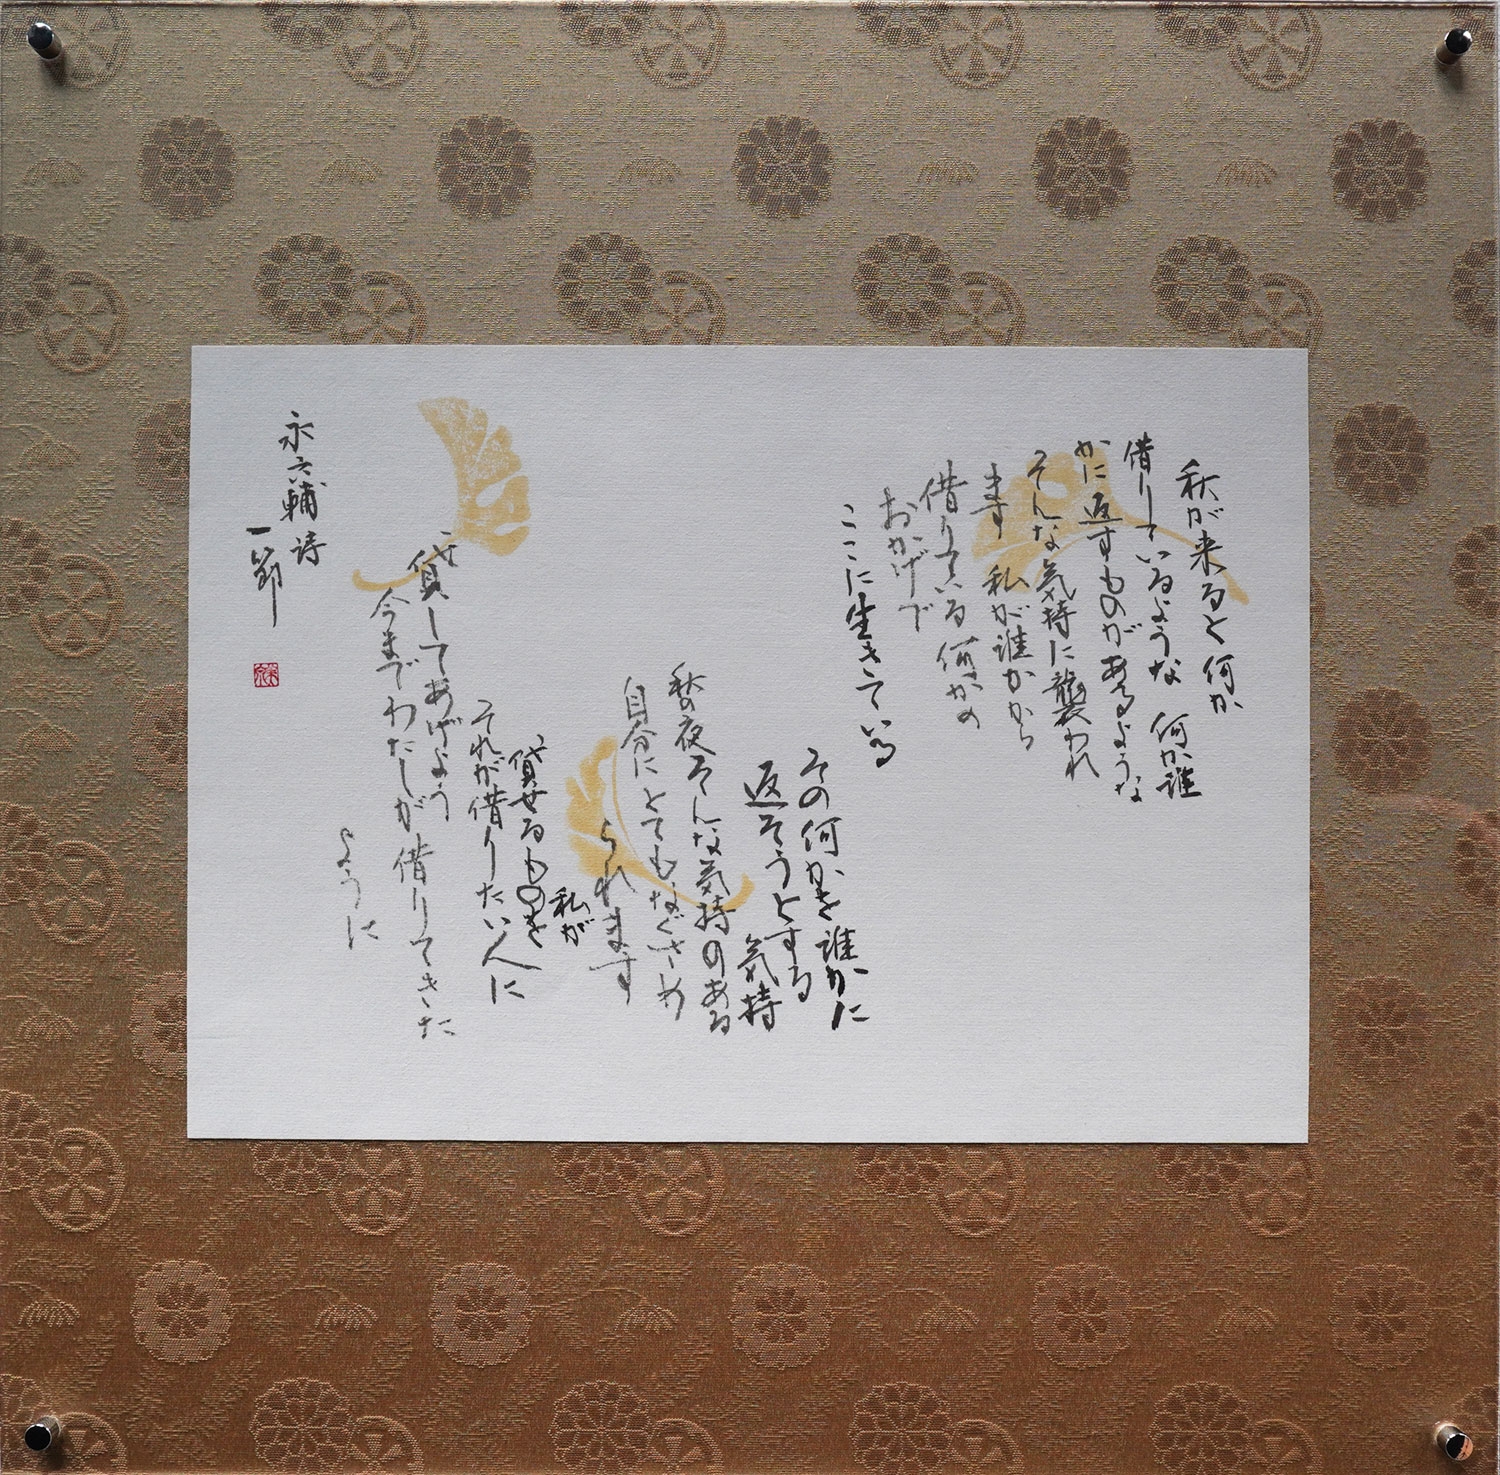 秋が来ると何か
借りているような 何か誰
かに返すものがあるような
そんな気持に襲われ
ます 私が誰かから
借りている何かの
おかげで
ここに生きている
その何かを誰かに
返そうとする
気持
秋の夜そんな気持のある
自分にとてもなぐさめ
られます
私が
貸せるものを
それが借りたい人に
貸してあげよう
今までわたしが借りてきた
ように
永六輔詩
一節